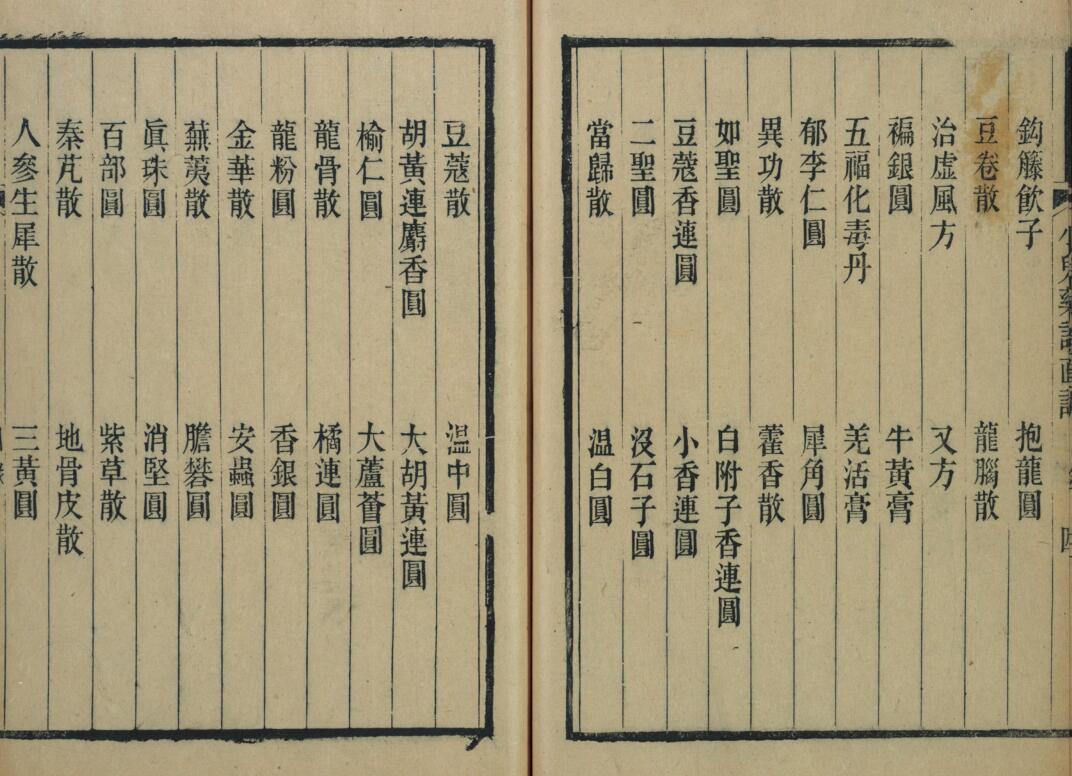 小兒藥證直訣
鈎籐飲子 抱龍圓
豆卷散 龍腦散
治虛風方 又方
褊銀圓 牛黃膏
五福化毒丹 羗活膏
郁李仁圓 犀角圓
異功散 藿香散
如聖圓 白附子香連圓
豆蔻香連圓 小香連圓
二聖圓 沒石子圓
當歸散 温白圓
豆蔻散 温中圓
胡黃連麝香圓 大胡黃連圓
榆仁圓 大蘆薈圓
龍骨散 橘連圓
龍粉圓 香銀圓
金華散 安蟲圓
蕪荑散 膽礬圓
眞珠圓 消堅圓
百部圓 紫草散
秦艽散 地骨皮散
人參生犀散 三黃圓